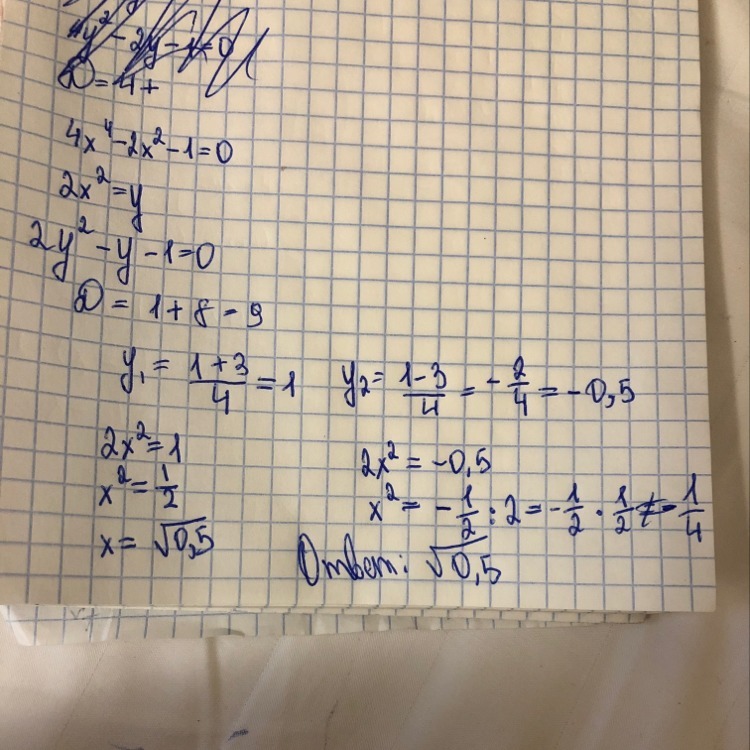 4y² - 2y - 1 = 0
D = 4 +
4x⁴ - 2x² - 1 = 0
2x² = y
2y² - y - 1 = 0
D = 1 + 8 - 9
y₁ = (1 + 3)/4 = 1 y₂ = (1 - 3)/4 = - 2/4 = - 0,5
2x² = 1 2x² = -0,5
x² = 1/2 x² = - 1/2 : 2 = - 1/2 · 1/2 ≠ - 1/4
x = √0,5 Ответ: √0,5